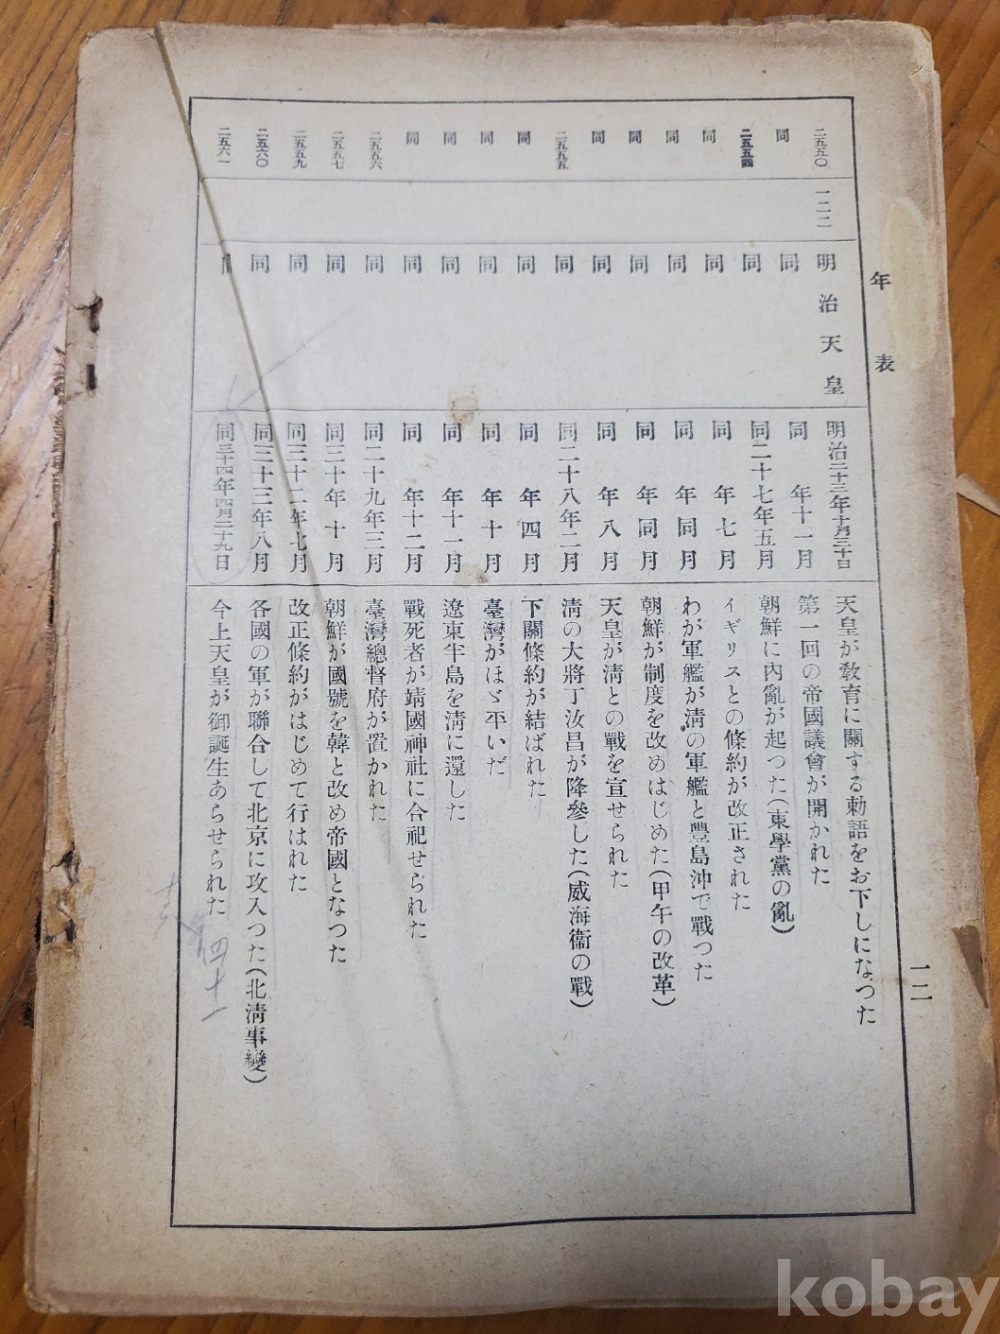 年表
一二
二五五〇 一二二 明治天皇 明治二十三年十月三十日 天皇が敎育に關する勅語をお下しになつた
同 同 同年十一月 第一回の帝國議會が開かれた
二五五四 同 同二十七年五月 朝鮮に內亂が起つた(東學黨の亂)
同 同 同年七月 イギリスとの條約が改正された
同 同 同年同月 わが軍艦が淸の軍艦と豐島沖で戰つた
同 同 同年同月 朝鮮が制度を改めはじめた(甲午の改革)
同 同 同年八月 天皇が淸との戰を宣せられた
二五五五 同 同二十八年二月 淸の大將丁汝昌が降參した(威海衞の戰)
同 同 同年四月 下關條約が結ばれた
同 同 同年十月 臺灣がほゞ平いだ
同 同 同年十一月 遼東半島を淸に還した
同 同 同年十二月 戰死者が靖國神社に合祀せられた
二五五六 同 同二十九年三月 臺灣總督府が置かれた
二五五七 同 同三十年十月 朝鮮が國號を韓と改め帝國となつた
二五五九 同 同三十二年七月 改正條約がはじめて行はれた
二五六〇 同 同三十三年八月 各國の軍が聯合して北京に攻入つた(北淸事變)
二五六一 同 同三十四年四月二十九日 今上天皇が御誕生あらせられた
四十一
kobay